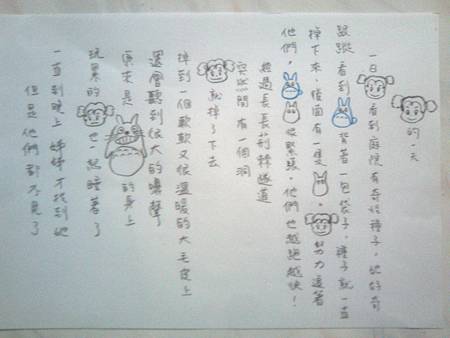 的一天
一日 看到庭院有奇怪種子，她好奇
跟蹤看到 背著一包袋子，種子就一直
掉下來，後面有一隻 ， 努力追著
他們， 很緊張，他們也越跑越快！
經過長長荊棘隧道
突然間有一個洞
就掉了下去
掉到一個軟軟又很溫暖的大毛皮上
還會聽到很大的嚕聲
原來是 的身上
玩累的 也一起睡著了
一直到晚上 姊姊才找到她
但是他們都不見了